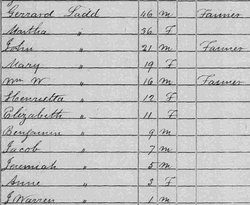 Gerrard Ladd 46 M Farmer
Martha " 36 F
John " 21 M Farmer
Mary " 19 F
Wm W " 16 M Farmer
Henrietta " 12 F
Elizabeth " 11 F
Benjamin " 9 M
Jacob " 7 M
Jeremiah " 5 M
Anne " 3 F
J Warren " 1 M